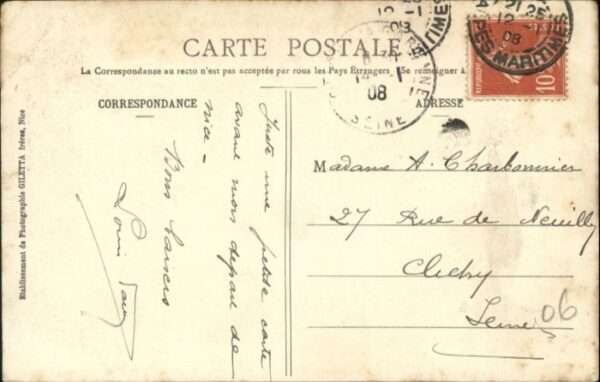 CARTE POSTALE
La Correspondance au recto n'est pas acceptée par tous les Pays Étrangers (Se renseigner à
CORRESPONDANCE
ADRESSE
Etablissement de Photographie GILETTA frères, Nice
Juste une petite carte
avant mon départ de
Nice -
Bons baisers
Louis
Madame A. Charbonnier
27 Rue de Neuilly
Clichy
Seine
06
21 25
12 -1
08
PES MARITIMES
08
SEINE
12 -1
08
TIMES
10